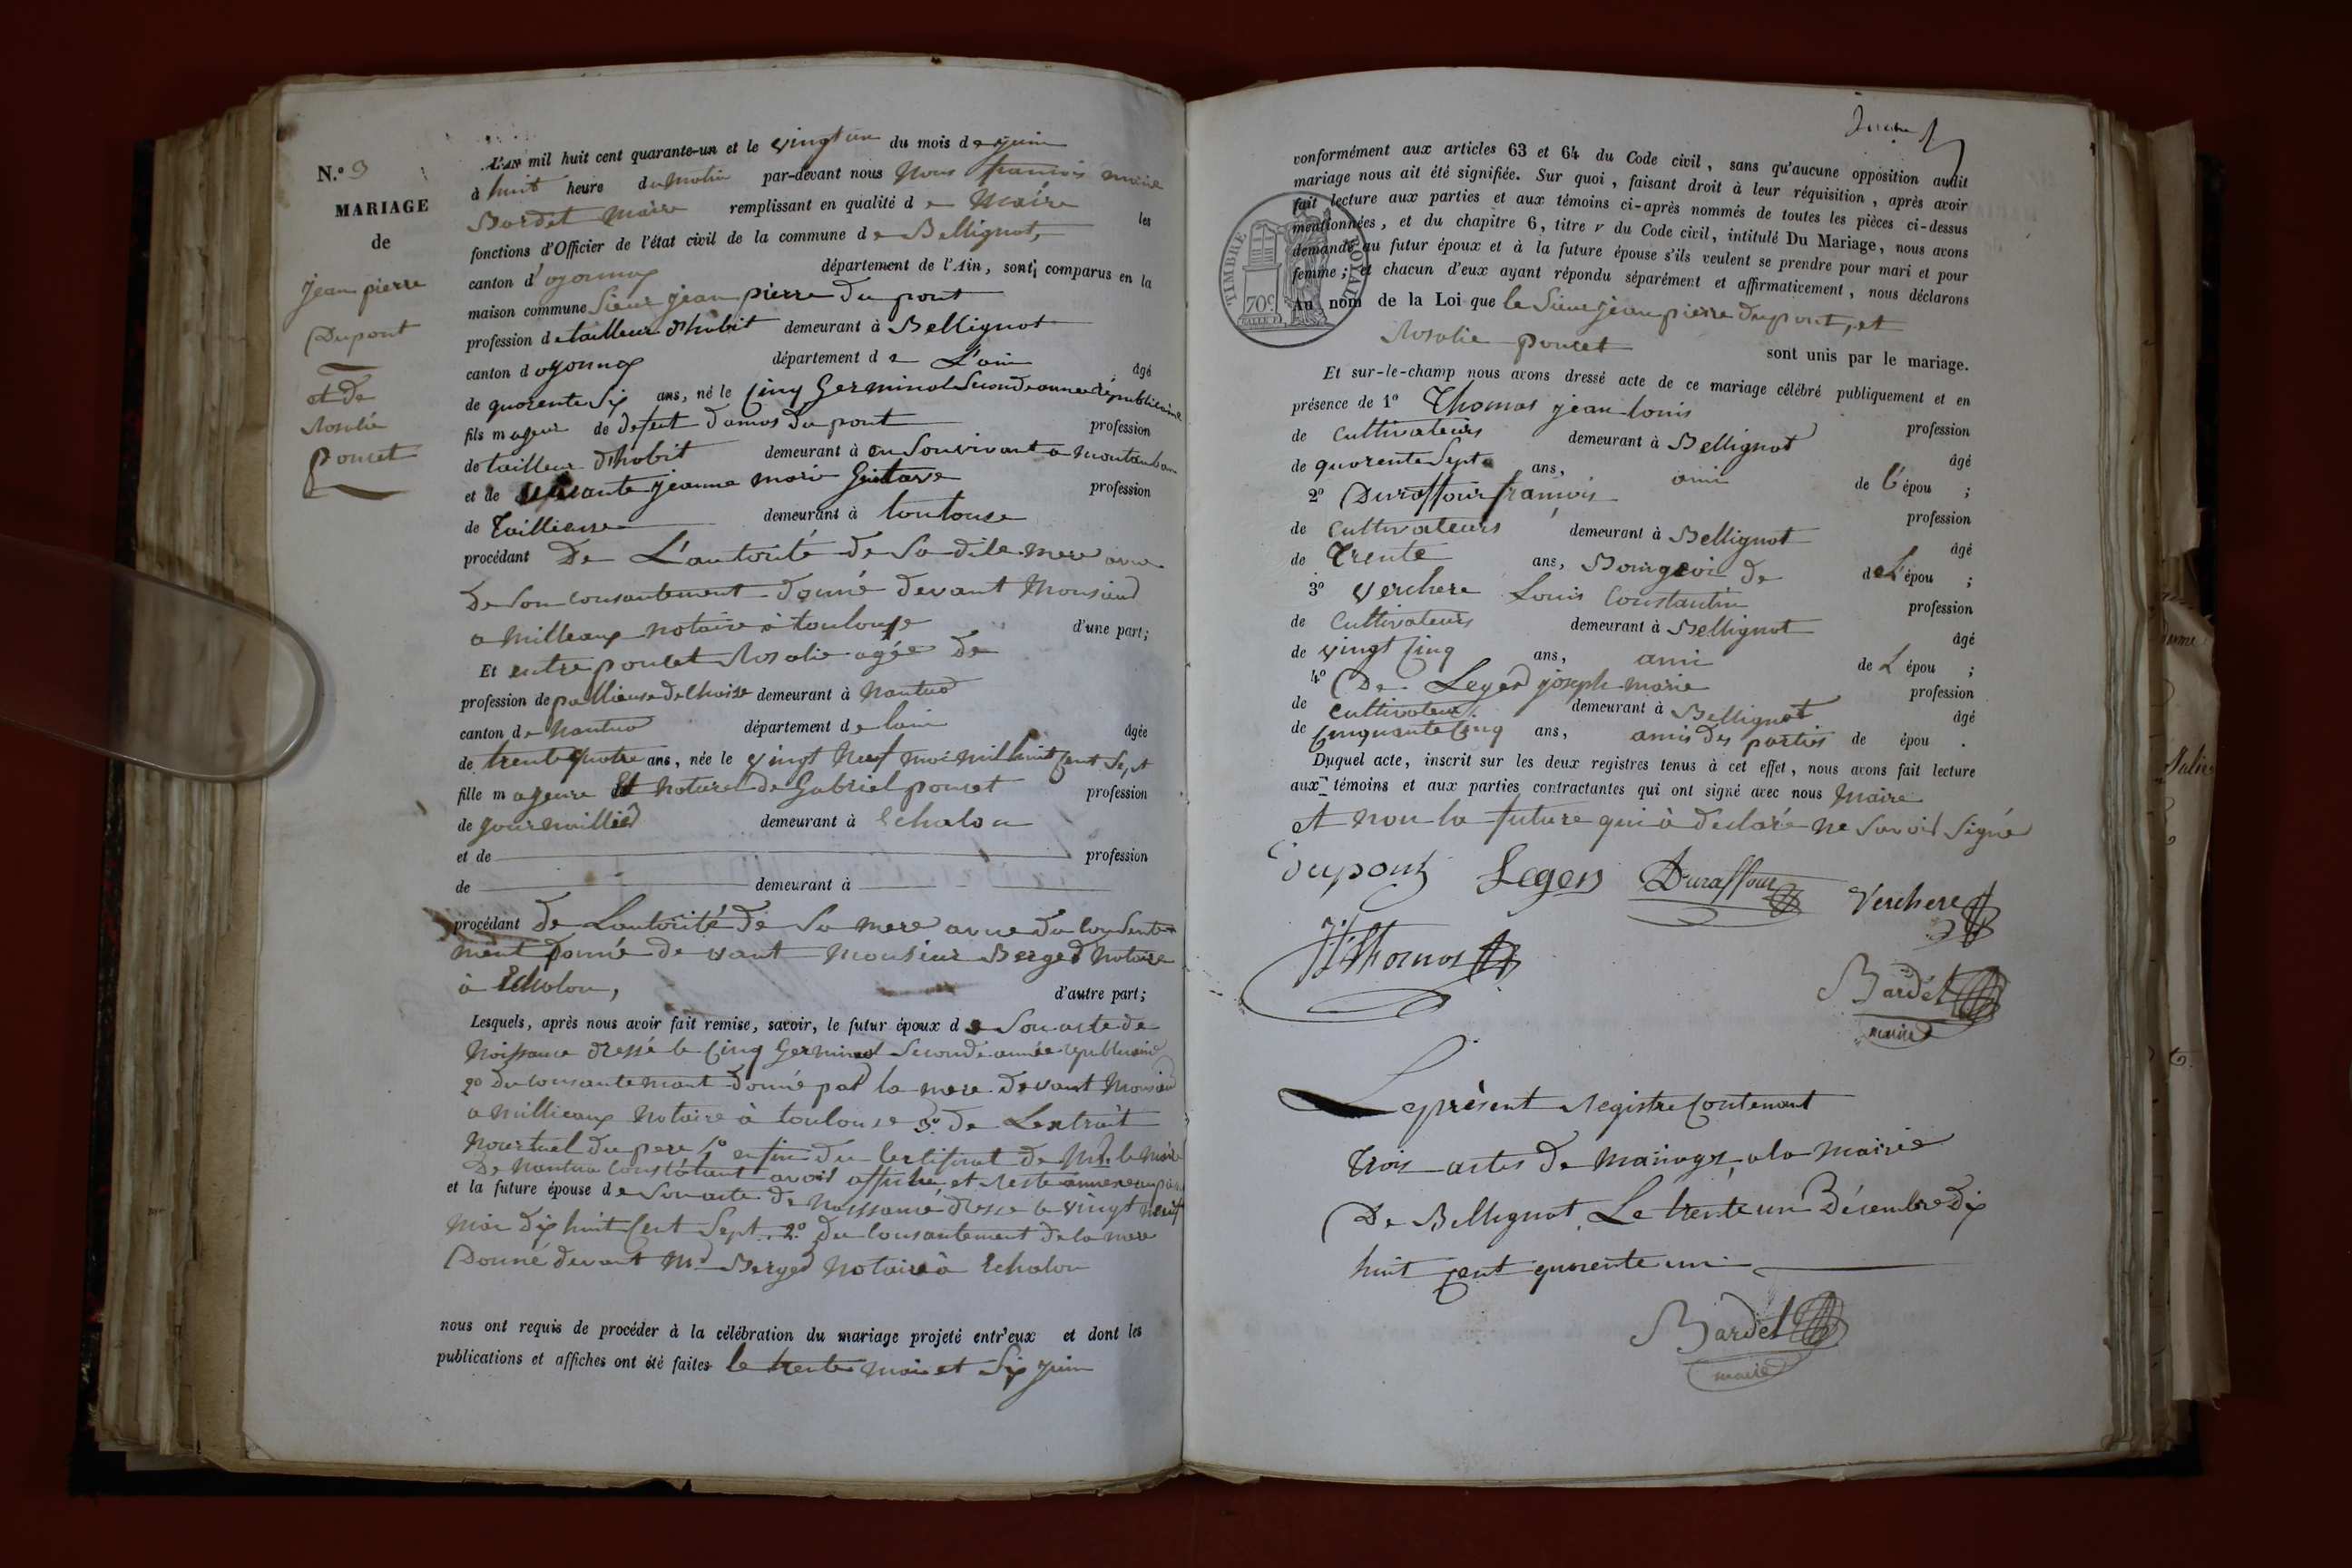 N.° 3
MARIAGE
de
Jean pierre
Dupont
et de
Rosalie
Poncet
L'AN mil huit cent quarante-un et le vingt un du mois de juin
à huit heure du matin par-devant nous Nous francois marie
Bardet Maire remplissant en qualité de Maire les
fonctions d'Officier de l'état civil de la commune de Bellignat,
canton d'oyonnax département de l'Ain, sont comparus en la
maison commune Sieur jean pierre Dupont
profession de tailleur d'habit demeurant à Bellignat
canton d oyonnax département de L'ain âgé
de quarente Six ans, né le Cinq Germinal Seconde année républicaine
fils majeur de defunt Damas Dupont profession
de tailleur d'habit demeurant à en Son vivant a Montauban
et de jeanne marie profession
de Taillieuse demeurant à toulouse
procédant De L'autorité de Sa dite mere avec
De Son consantement donné devant Monsieud
amilleaux notaire à toulouse d'une part;
Et entre poncet Rosalie agée de
profession de pallieuse de Chaise demeurant à Nantua
canton de Nantua département de lain âgée
de trente quatre ans, née le vingt Neuf mai mil huit Cent Sept
fille majeure et naturel de Gabriel poncet profession
de journaillied demeurant à Echalon
et de profession
de demeurant à
procédant de Lautorité de Sa mere avec du Consente=
ment donné devant Monsieur Berged Notaire
à Echalon, d'autre part;
Lesquels, après nous avoir fait remise, savoir, le futur époux de Son acte de
Naissance dressé le Cinq Germinal Seconde année republicaine
2° du consantement donné pad la mere devant Monsieud
amillieaux Notaire à toulouse 3° de Lextrait
Mourtuel du pere enfin du Certificat de Mr. le Maire
De Nantua Constatant avoid affiché et
et la future épouse de Son acte de Naissance dressé le vingt neuf
Mai dix huit Cent Sept 2° du Consantement de la mere
Donné devant Md Berged Notaire à Echalon
nous ont requis de procéder à la célébration du mariage projeté entr'eux et dont les
publications et affiches ont été faites le trente Mai et Six juin
conformément aux articles 63 et 64 du Code civil, sans qu'aucune opposition audit
mariage nous ait été signifiée. Sur quoi, faisant droit à leur réquisition, après avoir
fait lecture aux parties et aux témoins ci-après nommés de toutes les pièces ci-dessus
mentionnées, et du chapitre 6, titre v du Code civil, intitulé Du Mariage, nous avons
demandé au futur époux et à la future épouse s'ils veulent se prendre pour mari et pour
femme; et chacun d'eux ayant répondu séparément et affirmativement, nous déclarons
Au nom de la Loi que le Sieur jean pierre Dupont, et
Rosalie poncet sont unis par le mariage.
TIMBRE ROYAL
70c.
Et sur-le-champ nous avons dressé acte de ce mariage célébré publiquement et en
présence de 1° Thomas jean louis profession
de Cultivateurs demeurant à Bellignat âgé
de quarente Septe ans, ami de l'épou ;
2° Duraffour francois profession
de Cultivateurs demeurant à Bellignat âgé
de Trente ans, Bourgeoi de de L'épou ;
3° Verchere Louis Constantin profession
de Cultivateurs demeurant à Bellignat âgé
de vingt Cinq ans, ami de L épou ;
4° De Leged joseph marie profession
de Cultivateur demeurant à Bellignat âgé
de Cinquante Cinq ans, amis des parties de épou .
Duquel acte, inscrit sur les deux registres tenus à cet effet, nous avons fait lecture
aux témoins et aux parties contractantes qui ont signé avec nous Maire
et non la future qui à déclaré ne Savoid Signé
Dupont Leger Duraffour Verchere
Thomas
Bardet
maire
Le présent Registre Contenant
trois actes de mariages, a la mairie
De Bellignat, Le trente un Décembre dix
huit cent quarente un
Bardet
maire